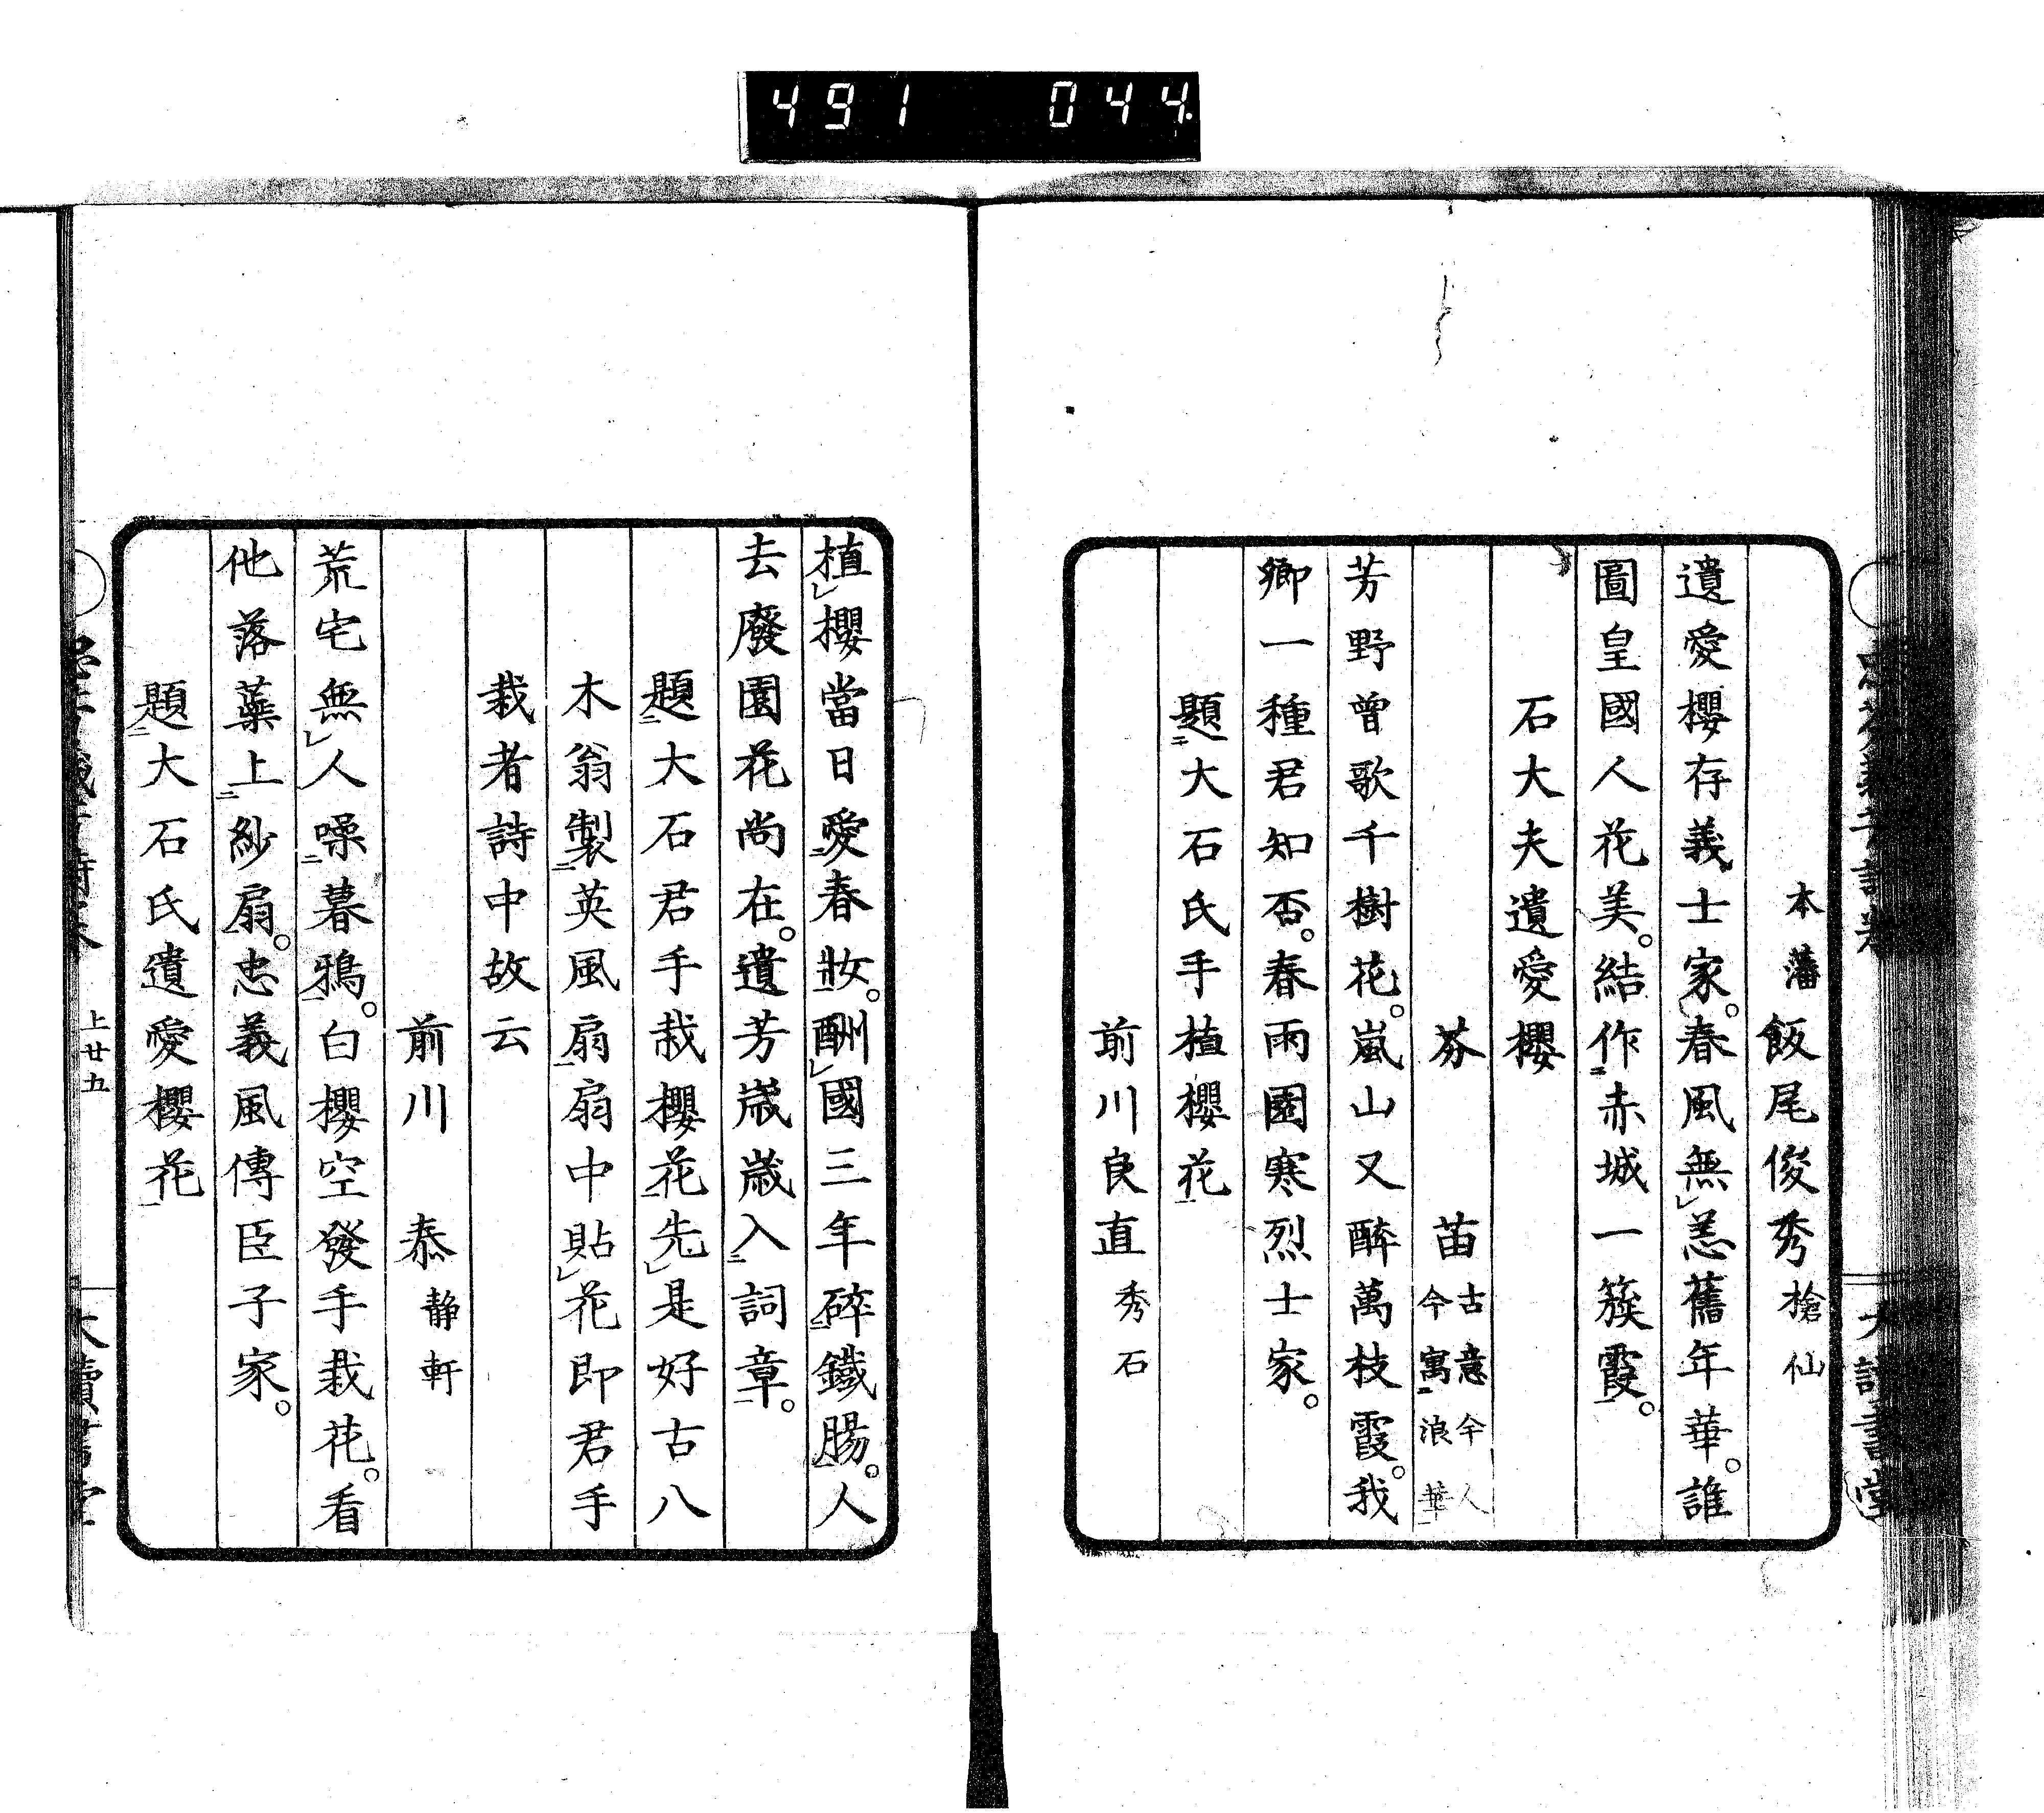 491 044.
本藩飯尾俊秀槍仙
遺愛櫻存義士家。春風無恙舊年華。誰
圖皇國人花美。結作赤城一簇霞。
石大夫遺愛櫻
芬 苗 古意今人 今寓浪華
芳野曾歌千樹花。嵐山又醉萬枝霞。我
鄉一種君知否。春雨園寒烈士家。
題大石氏手植櫻花
前川良直秀石
植櫻當日愛春妝。酬國三年碎鐵腸。人
去廢園花尚在。遺芳歲歲入詞章。
題大石君手栽櫻花先是好古八
木翁製英風扇扇中貼花即君手
栽者詩中故云
前川 泰靜軒
荒宅無人噪暮鴉。白櫻空發手栽花。看
他落蘂上紗扇。忠義風傳臣子家。
題大石氏遺愛櫻花
上廿五